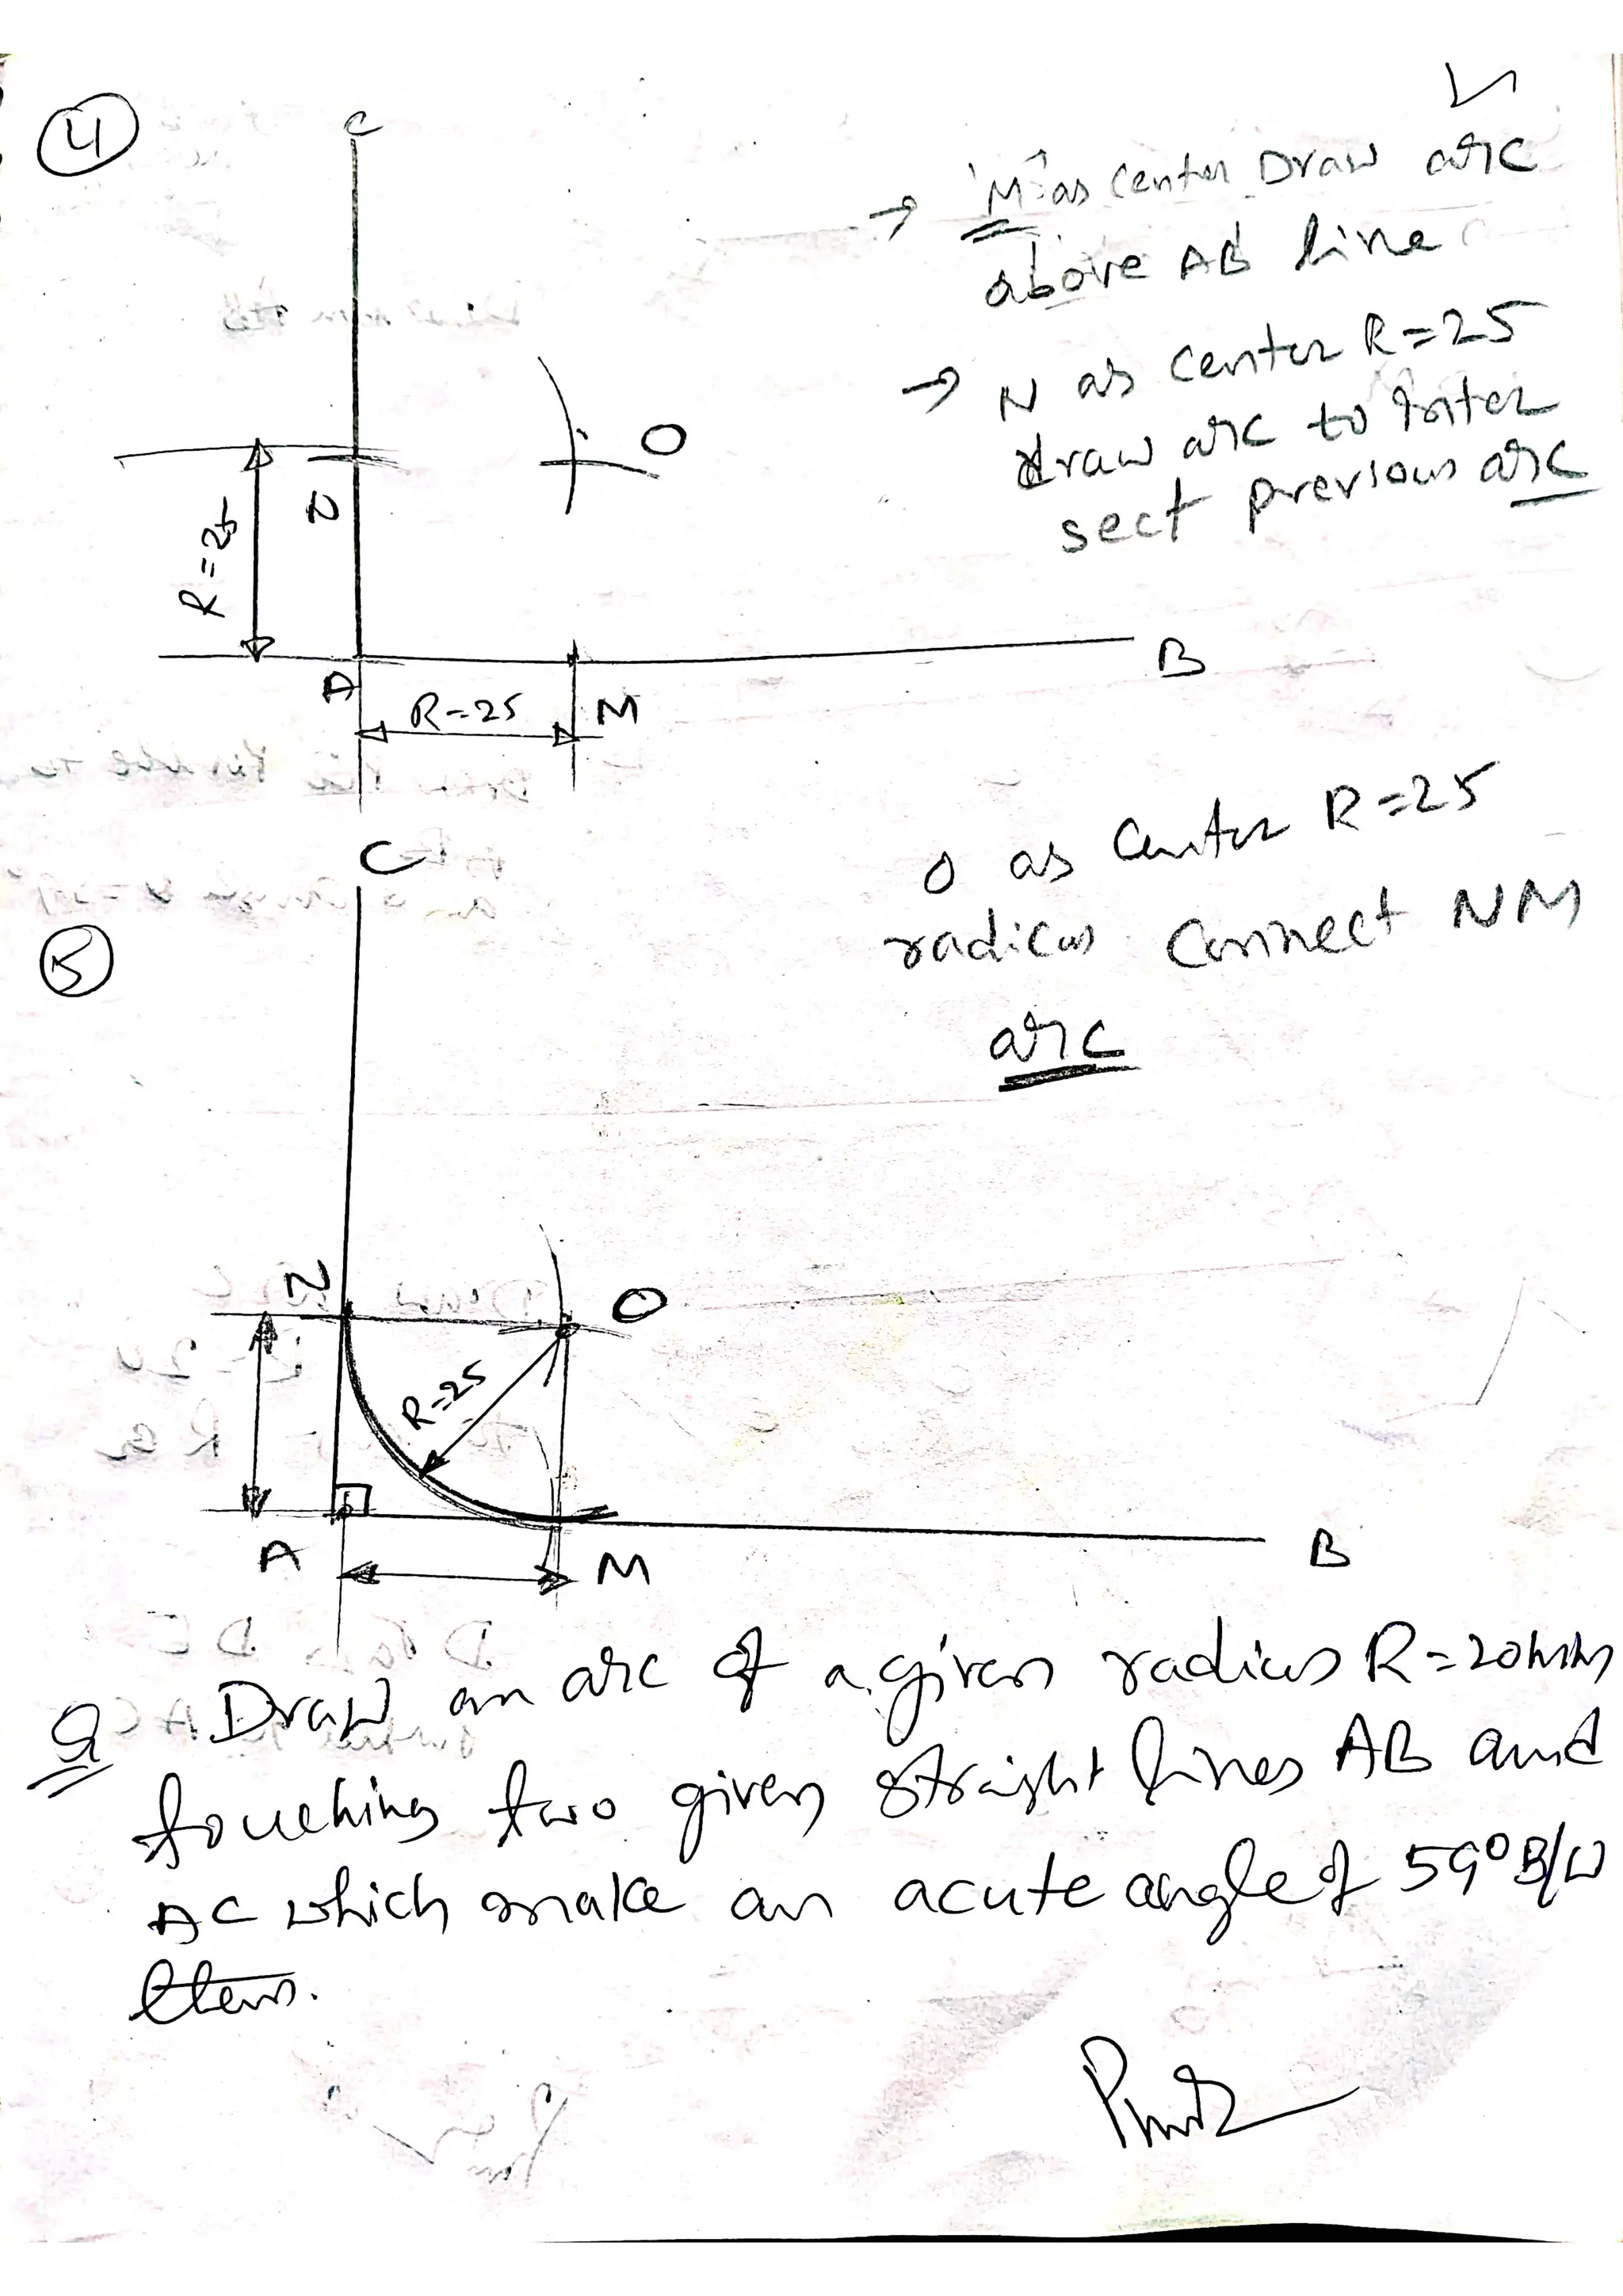 4
C
→ 'M' as center Draw arc
above AB line
→ N as center R=25
draw arc to inter
sect previous arc
O
N
R=25
A
R=25
M
B
C
5
O as center R=25
radius connect NM
arc
N
O
R=25
A
M
B
Q Draw an arc of a given radius R=20mm
touching two given straight lines AB and
AC which make an acute angle of 59° B/W
them.